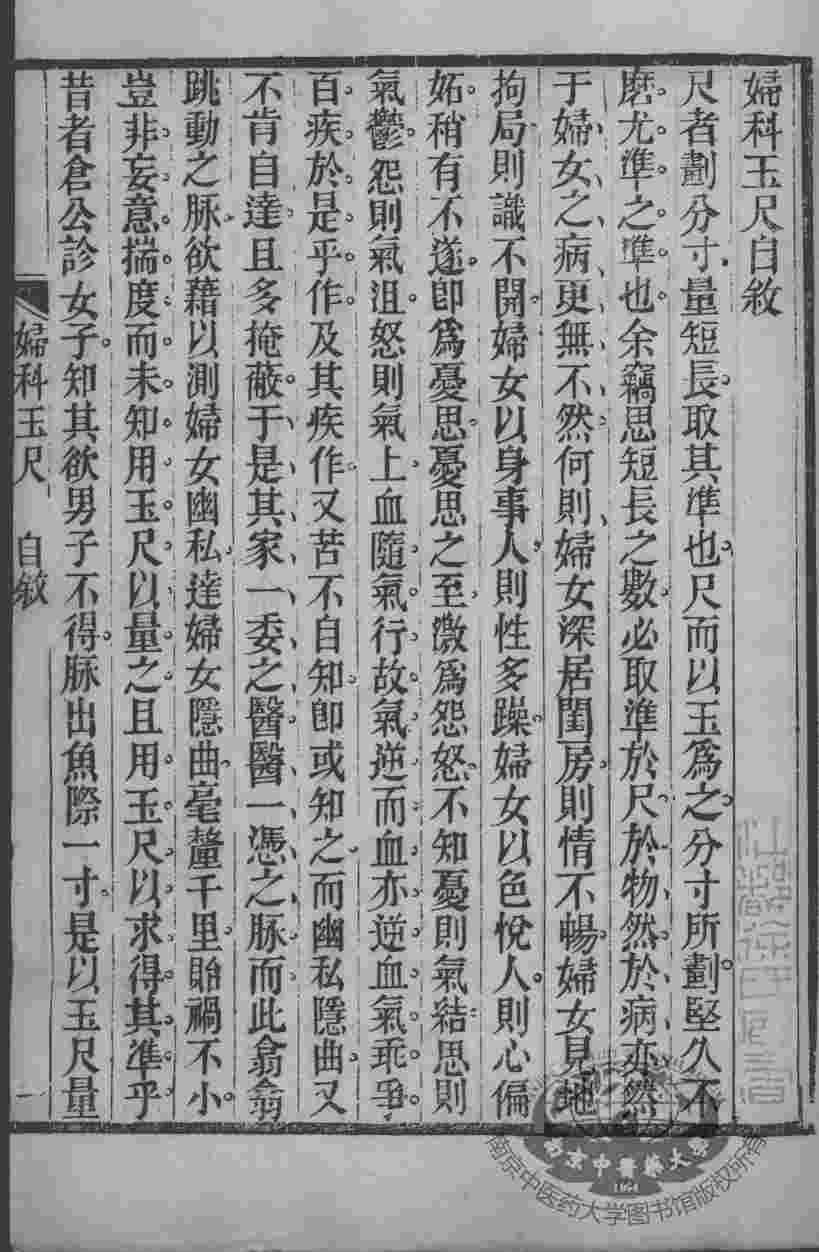 婦科玉尺自敘
尺者劃分寸量短長取其準也尺而以玉爲之分寸所劃堅久不
磨尤準之準也余竊思短長之數必取準於尺於物然於病亦然
于婦女之病更無不然何則婦女深居閨房則情不暢婦女見地
拘局則識不開婦女以身事人則性多躁婦女以色悅人則心偏
妬稍有不遂卽爲憂思憂思之至激爲怨怒不知憂則氣結思則
氣鬱怨則氣沮怒則氣上血隨氣行故氣逆而血亦逆血氣乖爭
百疾於是乎作及其疾作又苦不自知卽或知之而幽私隱曲又
不肯自達且多掩蔽于是其家一委之醫醫一憑之脉而此翕翕
跳動之脉欲藉以測婦女幽私達婦女隱曲毫釐千里貽禍不小
豈非妄意揣度而未知用玉尺以量之且用玉尺以求得其準乎
昔者倉公診女子知其欲男子不得脉出魚際一寸是以玉尺量
婦科玉尺 自敘 一
南京中醫藥大學
1954
南京中医药大学图书馆版权所有